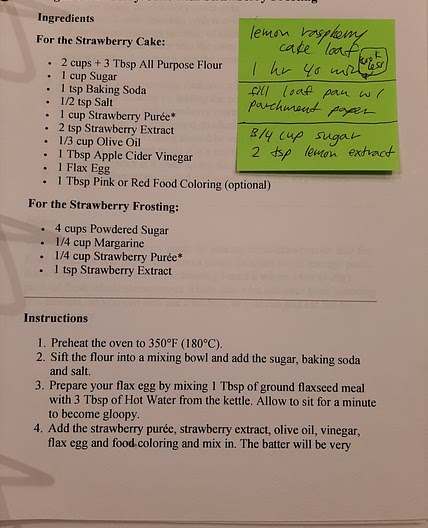 Ingredients
For the Strawberry Cake:
• 2 cups + 3 Tbsp All Purpose Flour
• 1 cup Sugar
• 1 tsp Baking Soda
• 1/2 tsp Salt
• 1 cup Strawberry Purée*
• 2 tsp Strawberry Extract
• 1/3 cup Olive Oil
• 1 Tbsp Apple Cider Vinegar
• 1 Flax Egg
• 1 Tbsp Pink or Red Food Coloring (optional)
For the Strawberry Frosting:
• 4 cups Powdered Sugar
• 1/4 cup Margarine
• 1/4 cup Strawberry Purée*
• 1 tsp Strawberry Extract
Instructions
1. Preheat the oven to 350°F (180°C).
2. Sift the flour into a mixing bowl and add the sugar, baking soda
and salt.
3. Prepare your flax egg by mixing 1 Tbsp of ground flaxseed meal
with 3 Tbsp of Hot Water from the kettle. Allow to sit for a minute
to become gloopy.
4. Add the strawberry purée, strawberry extract, olive oil, vinegar,
flax egg and food coloring and mix in. The batter will be very
lemon raspberry
cake loaf
1 hr 40 min
less
fill loaf pan w/
parchment paper
3/4 cup sugar
2 tsp lemon extract